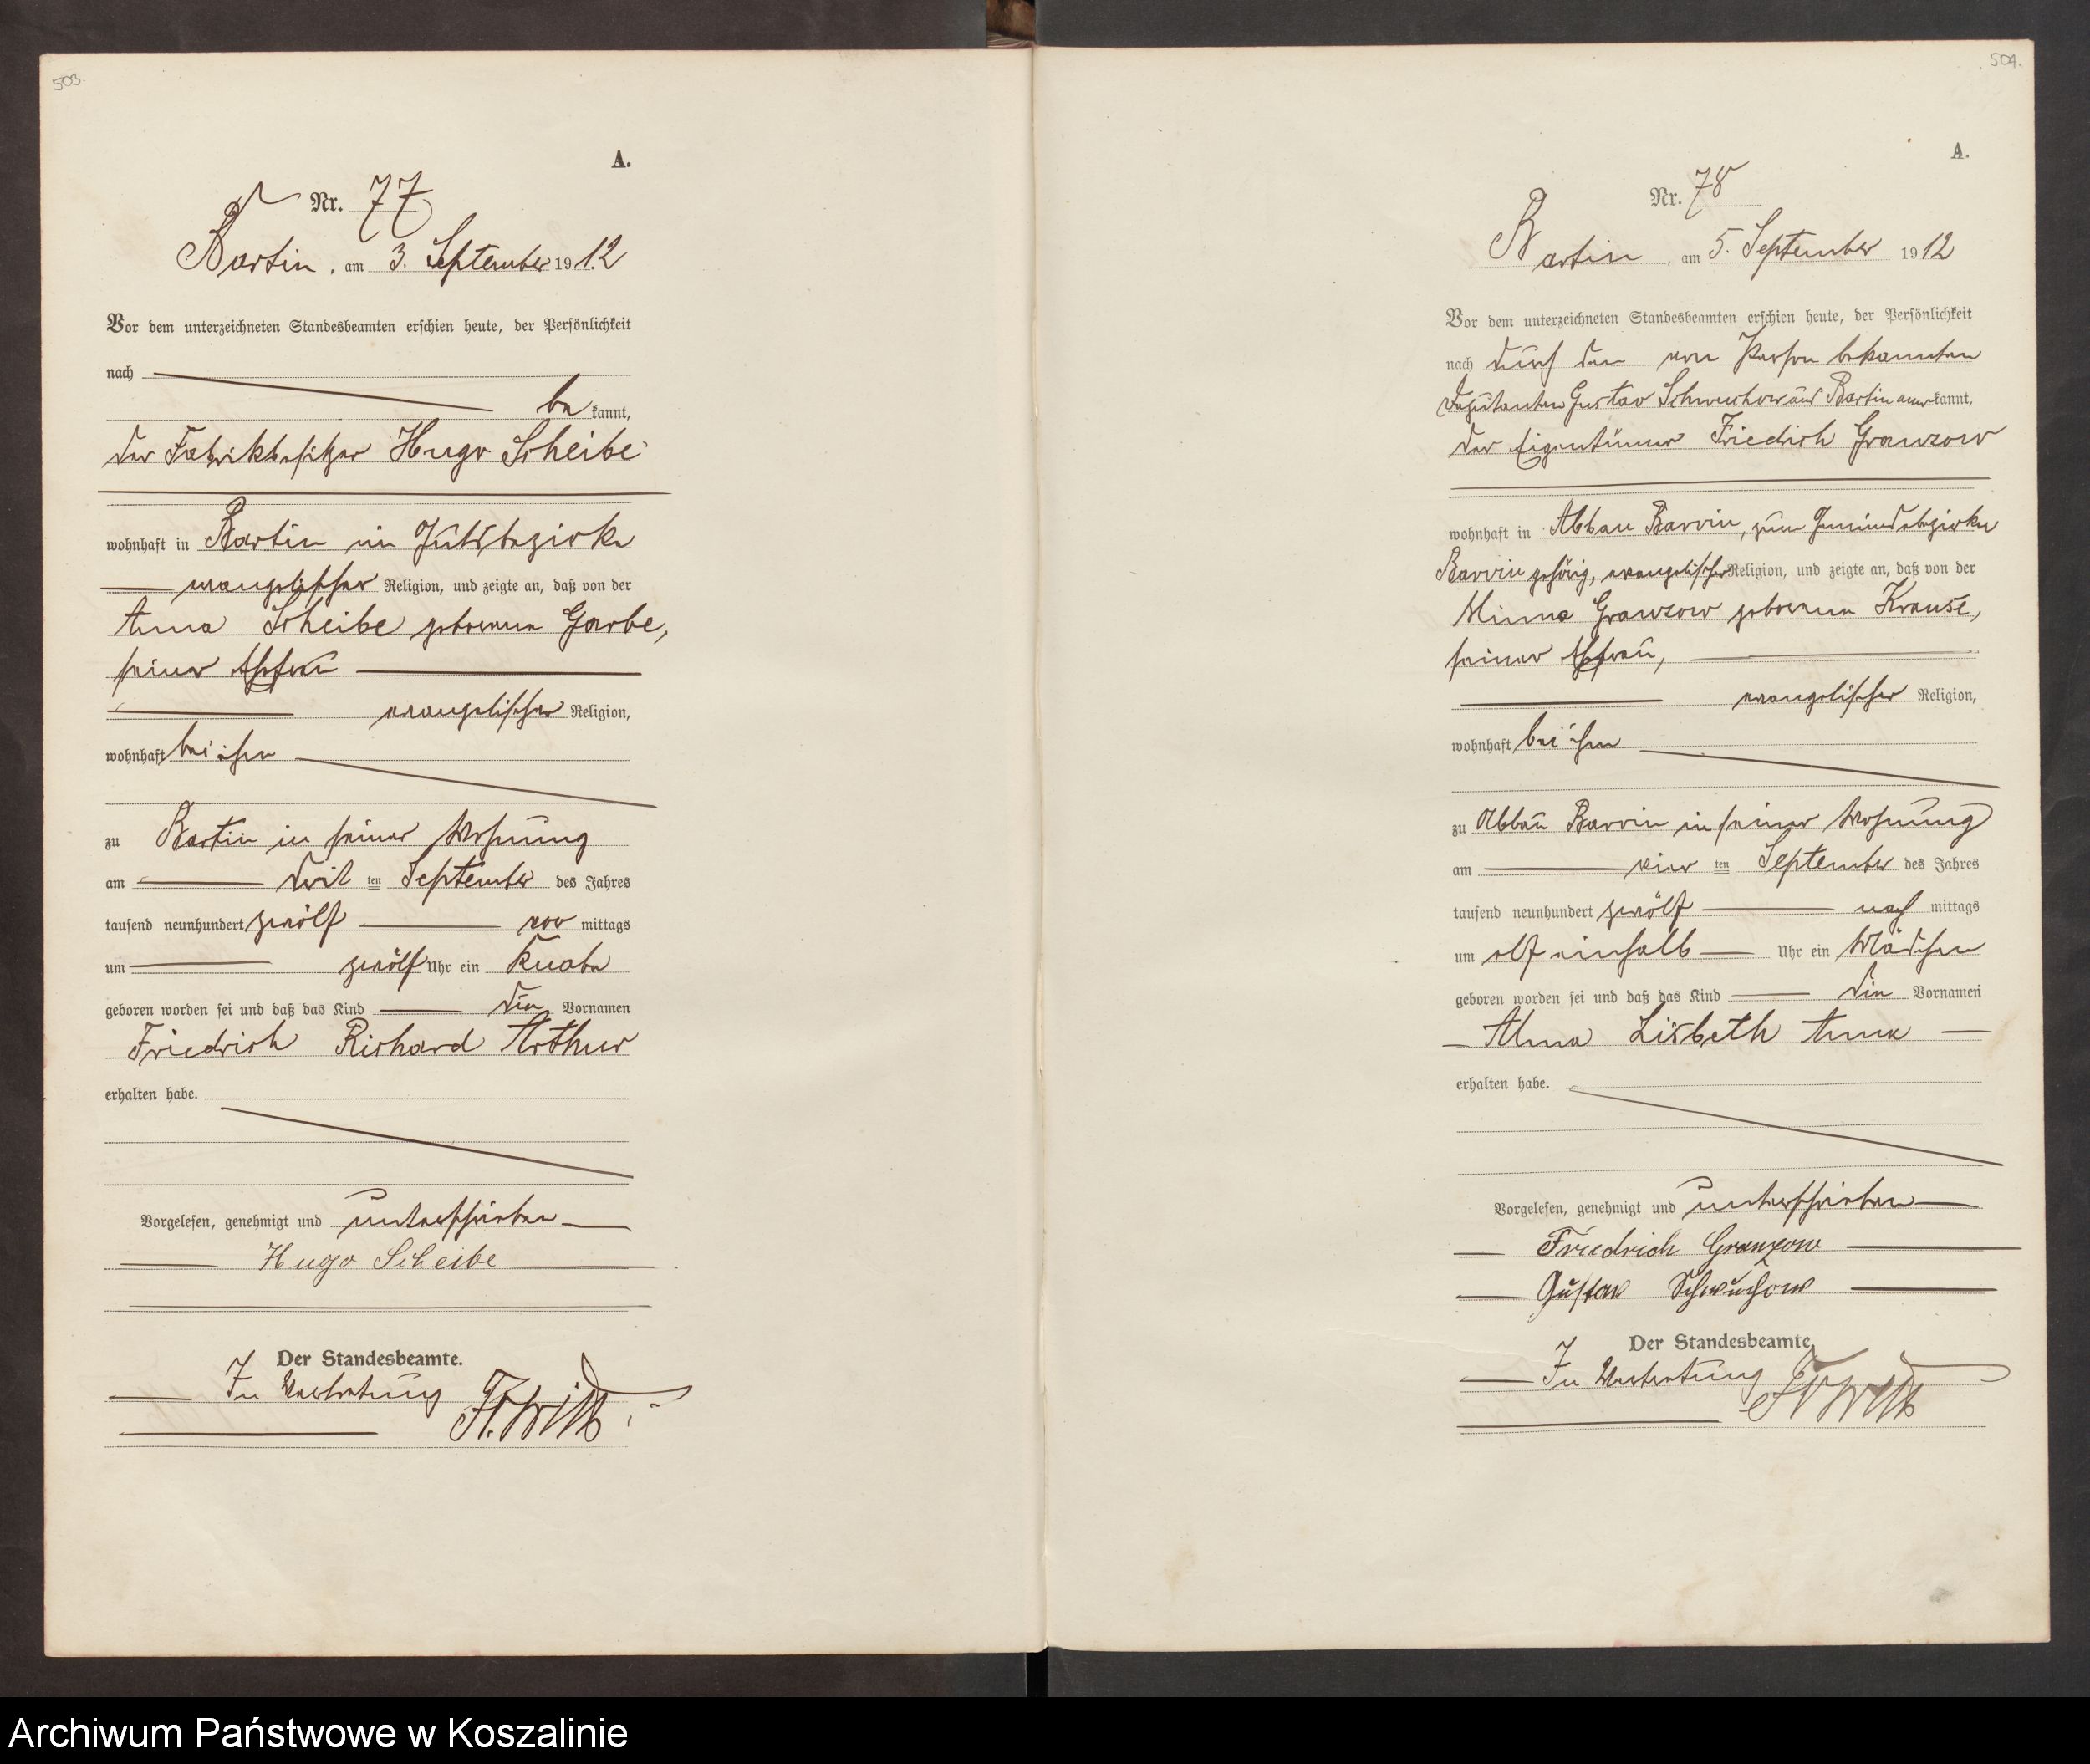 503.
A.
Nr. 77
Bartin, am 3. September 1912
Vor dem unterzeichneten Standesbeamten erschien heute, der Persönlichkeit
nach
be kannt,
der Fabrikbesitzer Hugo Scheibe
wohnhaft in Bartin im Gutsbezirke
evangelischer Religion, und zeigte an, daß von der
Anna Scheibe geborenen Garbe,
seiner Ehefrau
evangelischer Religion,
wohnhaft bei ihm
zu Bartin in seiner Wohnung
am drit ten September des Jahres
tausend neunhundert zwölf vor mittags
um zwölf Uhr ein Knabe
geboren worden sei und daß das Kind die Vornamen
Friedrich Richard Arthur
erhalten habe.
Vorgelesen, genehmigt und unterschrieben
Hugo Scheibe
Der Standesbeamte.
In Vertretung Fr. Witt
504.
A.
Nr. 78
Bartin, am 5. September 1912
Vor dem unterzeichneten Standesbeamten erschien heute, der Persönlichkeit
nach durch den von Person bekannten
Deputanten Gustav Schwuchow aus Bartin aner kannt,
der Eigentümer Friedrich Granzow
wohnhaft in Abbau Barvin, zum Gemeindebezirke
Barvin gehörig, evangelischer Religion, und zeigte an, daß von der
Minna Granzow geborenen Krause,
seiner Ehefrau,
evangelischer Religion,
wohnhaft bei ihm
zu Abbau Barvin in seiner Wohnung
am vier ten September des Jahres
tausend neunhundert zwölf nach mittags
um elf einhalb Uhr ein Mädchen
geboren worden sei und daß das Kind die Vornamen
Alma Lisbeth Anna
erhalten habe.
Vorgelesen, genehmigt und unterschrieben
Friedrich Granzow
Gustav Schwuchow
Der Standesbeamte.
In Vertretung Fr Witt
Archiwum Państwowe w Koszalinie